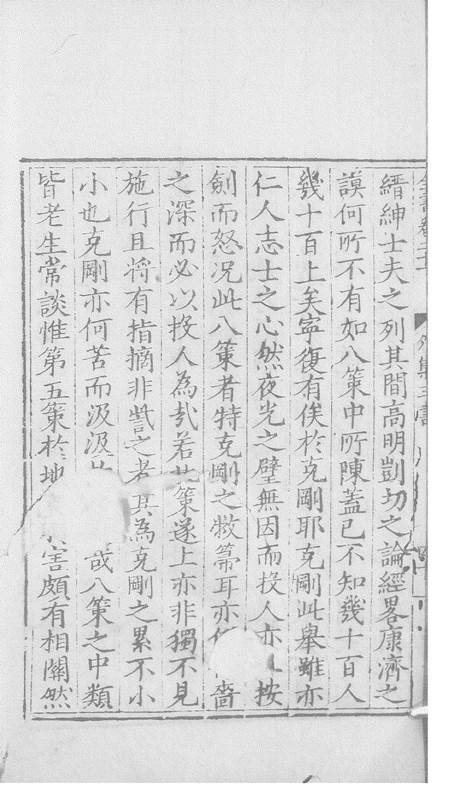 縉紳士夫之列其間高明剴切之論經畧康濟之
謨何所不有如八策中所陳蓋已不知幾十百人
幾十百上矣寧復有俟於克剛耶克剛此舉雖亦
仁人志士之心然夜光之璧無因而投人亦 按
劍而怒况此八策者特克剛之敝箒耳亦何 嗇
之深而必以投人為哉若此策遂上亦非獨不見
施行且將有指摘非訾之者其為克剛之累不小
小也克剛亦何苦而汲汲 哉八策之中類
皆老生常談惟第五策於地 害頗有相關然